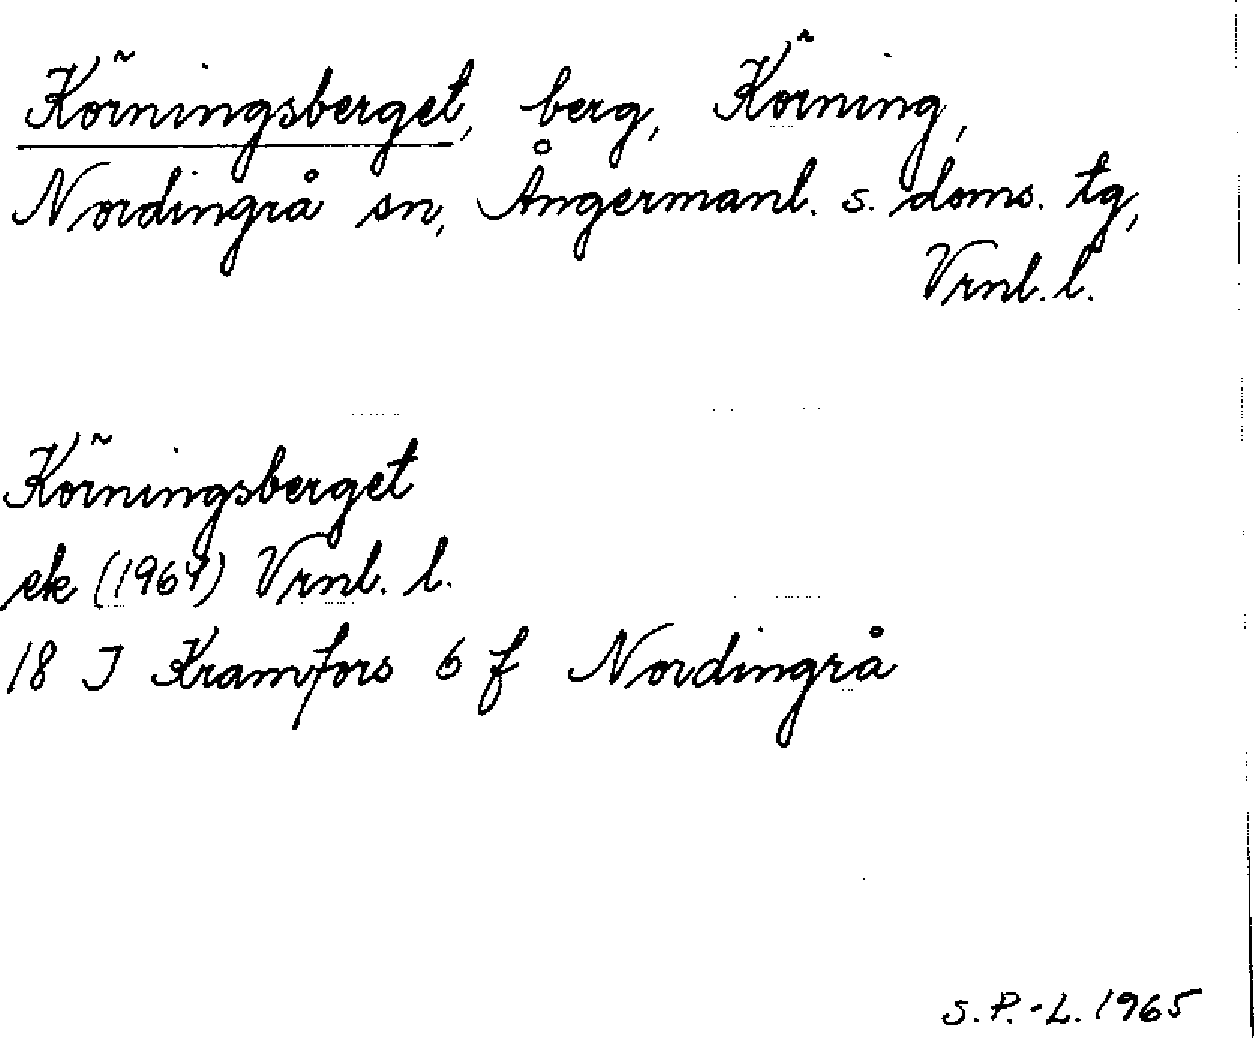 Körningsberget, berg, Körning,
Nordingrå sn, Ångermanl. s. doms. tg,
Vrnl. l.
Körningsberget
ek (1964) Vrnl. l.
18 I Kramfors 6 f Nordingrå
S.P.-L. 1965